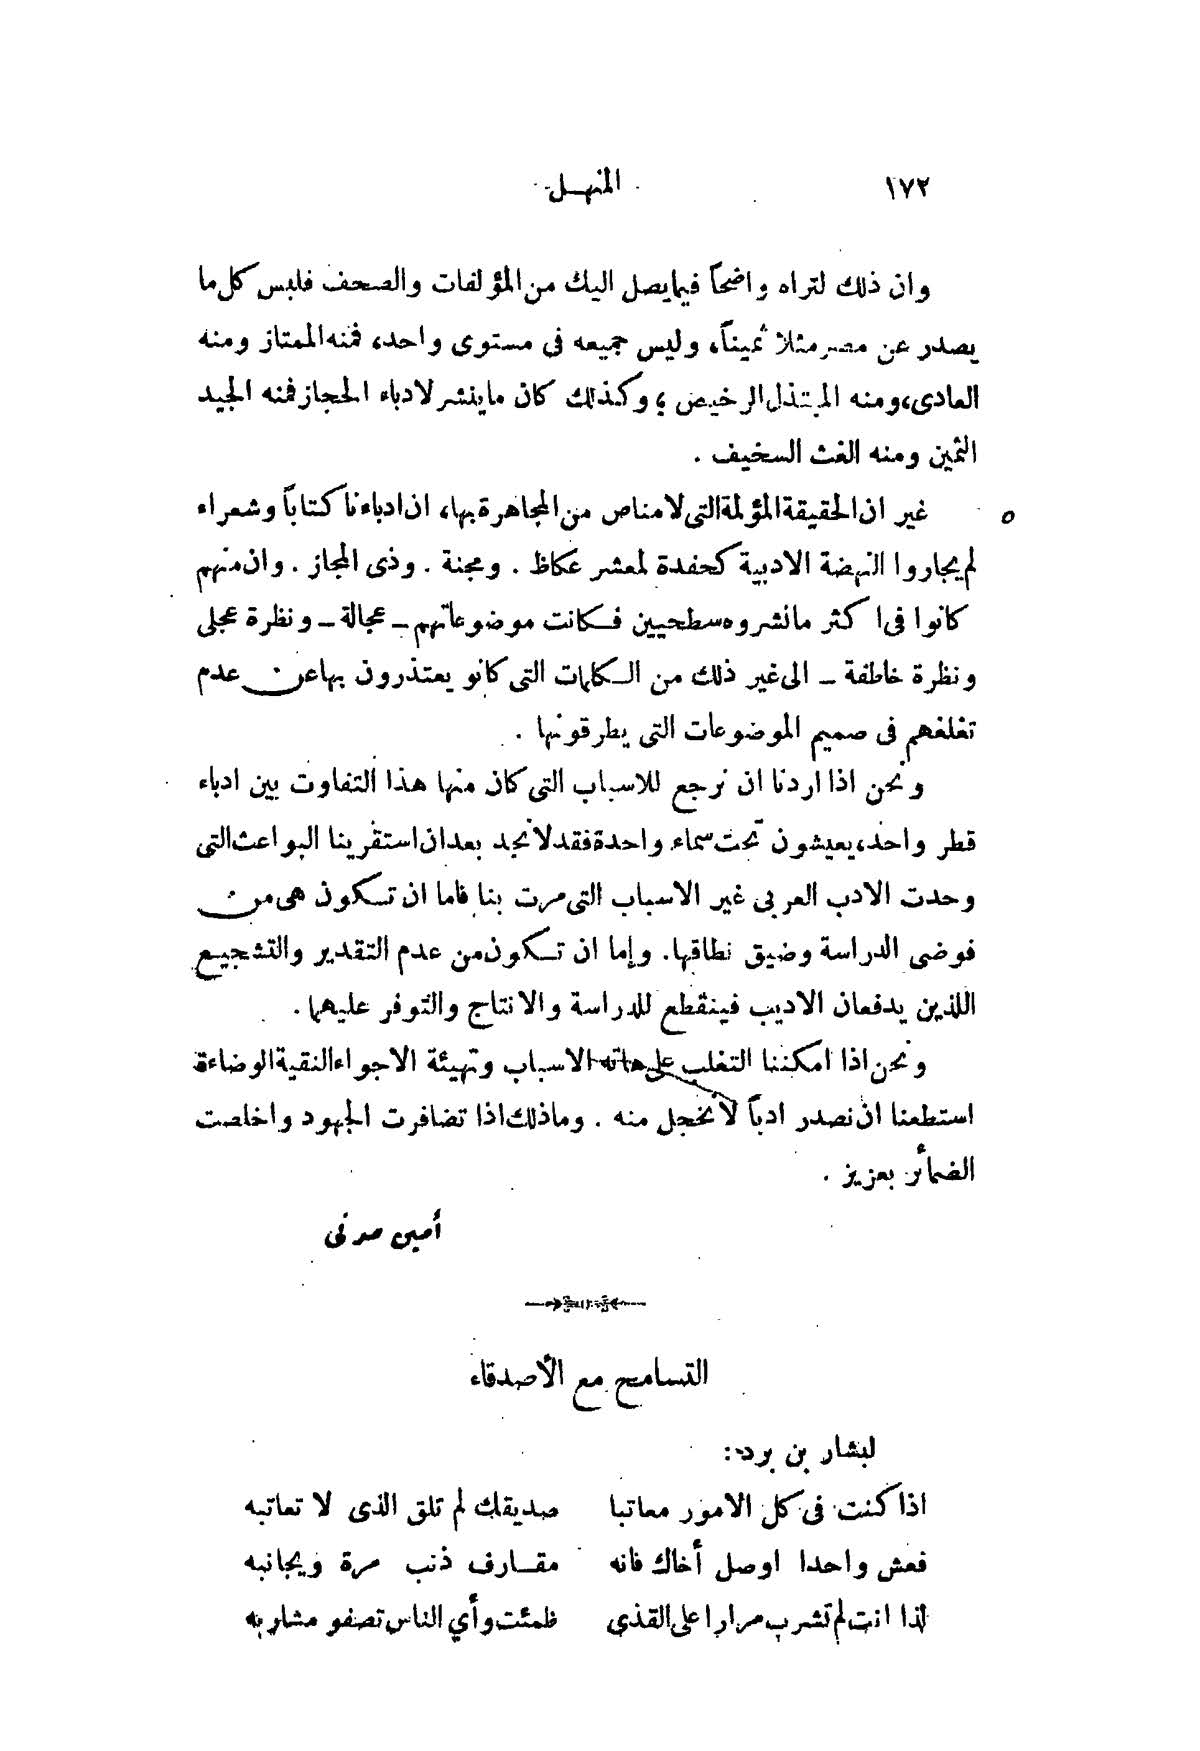 ١٧٢ المنهل
وان ذلك لتراه واضحاً فيما يصل اليك من المؤلفات والصحف فليس كل ما
يصدر عن مصر مثلا ثميناً، وليس جميعه فى مستوى واحد، فمنه الممتاز ومنه
العادى، ومنه المبتذل الرخيص ؛ وكذلك كان ماينشر لادباء الحجاز فمنه الجيد
الثمين ومنه الغث السخيف .
غير ان الحقيقة المؤلمة التى لا مناص من المجاهرة بها، ان ادباءنا كتاباً وشعراء
لم يجاروا النهضة الادبية كحفدة لمعشر عكاظ . ومجنة . وذى المجاز . وان منهم
كانوا فى اكثر مانشروه سطحيين فكانت موضوعاتهم ـ عجالة ـ ونظرة عجلى
ونظرة خاطفة ـ الى غير ذلك من الكلمات التى كانو يعتذرون بها عن عدم
تغلغهم فى صميم الموضوعات التى يطرقونها .
ونحن اذا اردنا ان نرجع للاسباب التى كان منها هذا التفاوت بين ادباء
قطر واحد، يعيشون تحت سماء واحدة فقد لا نجد بعد ان استقرينا البواعث التى
وحدت الادب العربى غير الاسباب التى مرت بنا فاما ان تكون هى من
فوضى الدراسة وضيق نطاقها. وإما ان تكون من عدم التقدير والتشجيع
اللذين يدفعان الاديب فينقطع للدراسة والانتاج والتوفر عليهما.
ونحن اذا امكننا التغلب على هاته الاسباب وتهيئة الاجواء النقية الوضاءة
استطعنا ان نصدر ادباً لا نخجل منه . وماذلك اذا تضافرت الجهود واخلصت
الضمائر بعزيز .
أمين مدنى
التسامح مع الأصدقاء
لبشار بن برد:
اذا كنت فى كل الامور معاتبا صديقك لم تلق الذى لا تعاتبه
فعش واحدا اوصل أخاك فانه مقارف ذنب مرة ويجانبه
اذا انت لم تشرب مرارا على القذى ظمئت وأي الناس تصفو مشاربه